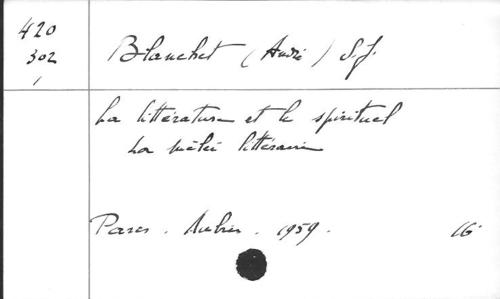 420
302
1
Blanchet (André) S.J.
La littérature et le spirituel
La mêlée littéraire
Paris. Aubier. 1959. 16°